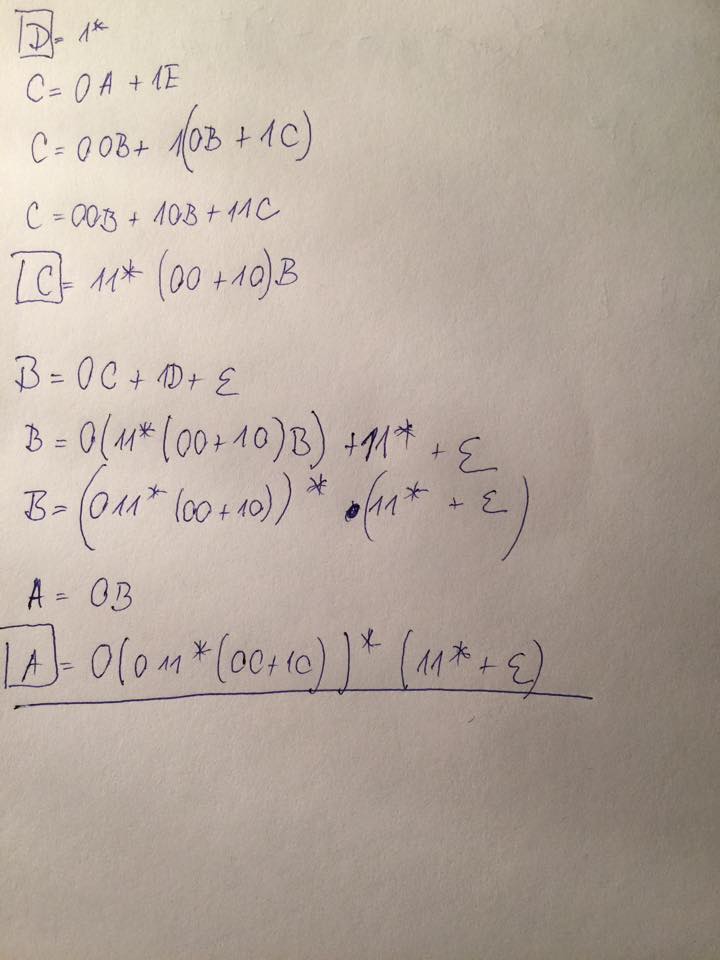 D = 1*
C = 0A + 1E
C = 00B + 1(0B + 1C)
C = 00B + 10B + 11C
C = 11* (00 + 10)B
B = 0C + 1D + ε
B = 0(11* (00 + 10)B) + 11* + ε
B = (011* (00 + 10))* · (11* + ε)
A = 0B
A = 0(011* (00+10))* (11* + ε)